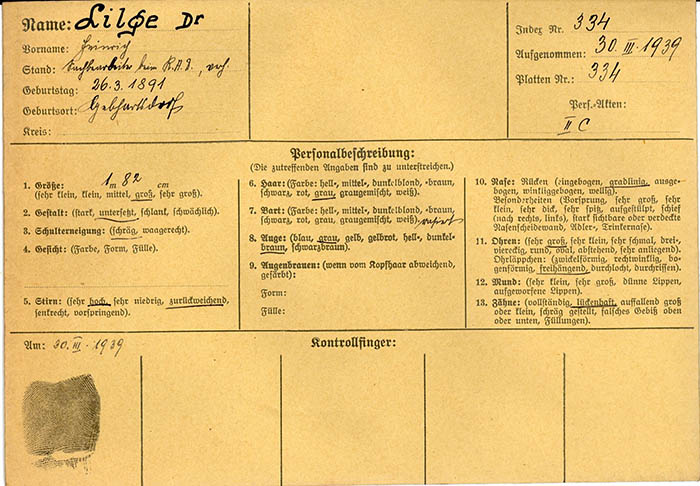 Name: Lilge Dr
Vorname: Heinrich
Stand: Sachbearbeiter beim R.A.D., verh.
Geburtstag: 26.3.1891
Geburtsort: Gebhardsdorf
Kreis:
Index Nr. 334
Aufgenommen: 30. III. 1939
Platten Nr.: 334
Pers.-Akten:
II C
Personalbeschreibung:
(Die zutreffenden Angaben sind zu unterstreichen.)
1. Größe: 1 m 82 cm
(sehr klein, klein, mittel, groß, sehr groß).
2. Gestalt: (stark, untersetzt, schlank, schwächlich).
3. Schulterneigung: (schräg, waagerecht).
4. Gesicht: (Farbe, Form, Fülle).
5. Stirn: (sehr hoch, sehr niedrig, zurückweichend,
senkrecht, vorspringend).
6. Haar: (Farbe: hell-, mittel-, dunkelblond, -braun,
schwarz, rot, grau, graugemischt, weiß).
7. Bart: (Farbe: hell-, mittel-, dunkelblond, -braun,
schwarz, rot, grau, graugemischt, weiß). rasiert
8. Auge: (blau, grau, gelb, gelbrot, hell-, dunkel-
braun, schwarzbraun).
9. Augenbrauen: (wenn vom Kopfhaar abweichend,
gefärbt):
Form:
Fülle:
10. Nase: Rücken (eingebogen, gradlinig, ausge-
bogen, winkliggebogen, wellig).
Besonderheiten (Vorsprung, sehr groß, sehr
klein, sehr dick, sehr spitz, aufgestülpt, schief
(nach rechts, links), stark sichtbare oder verdeckte
Nasenscheidewand, Adler-, Trinkernase).
11. Ohren: (sehr groß, sehr klein, sehr schmal, drei-
viereckig, rund, oval, abstehend, sehr anliegend).
Ohrläppchen: (zwickelförmig, rechtwinklig, bo-
genförmig, freihängend, durchlocht, durchrissen).
12. Mund: (sehr klein, sehr groß, dünne Lippen,
aufgeworfene Lippen).
13. Zähne: (vollständig, lückenhaft, auffallend groß
oder klein, schräg gestellt, falsches Gebiß oben
oder unten, Füllungen).
Am: 30. III. 1939
Kontrollfinger: